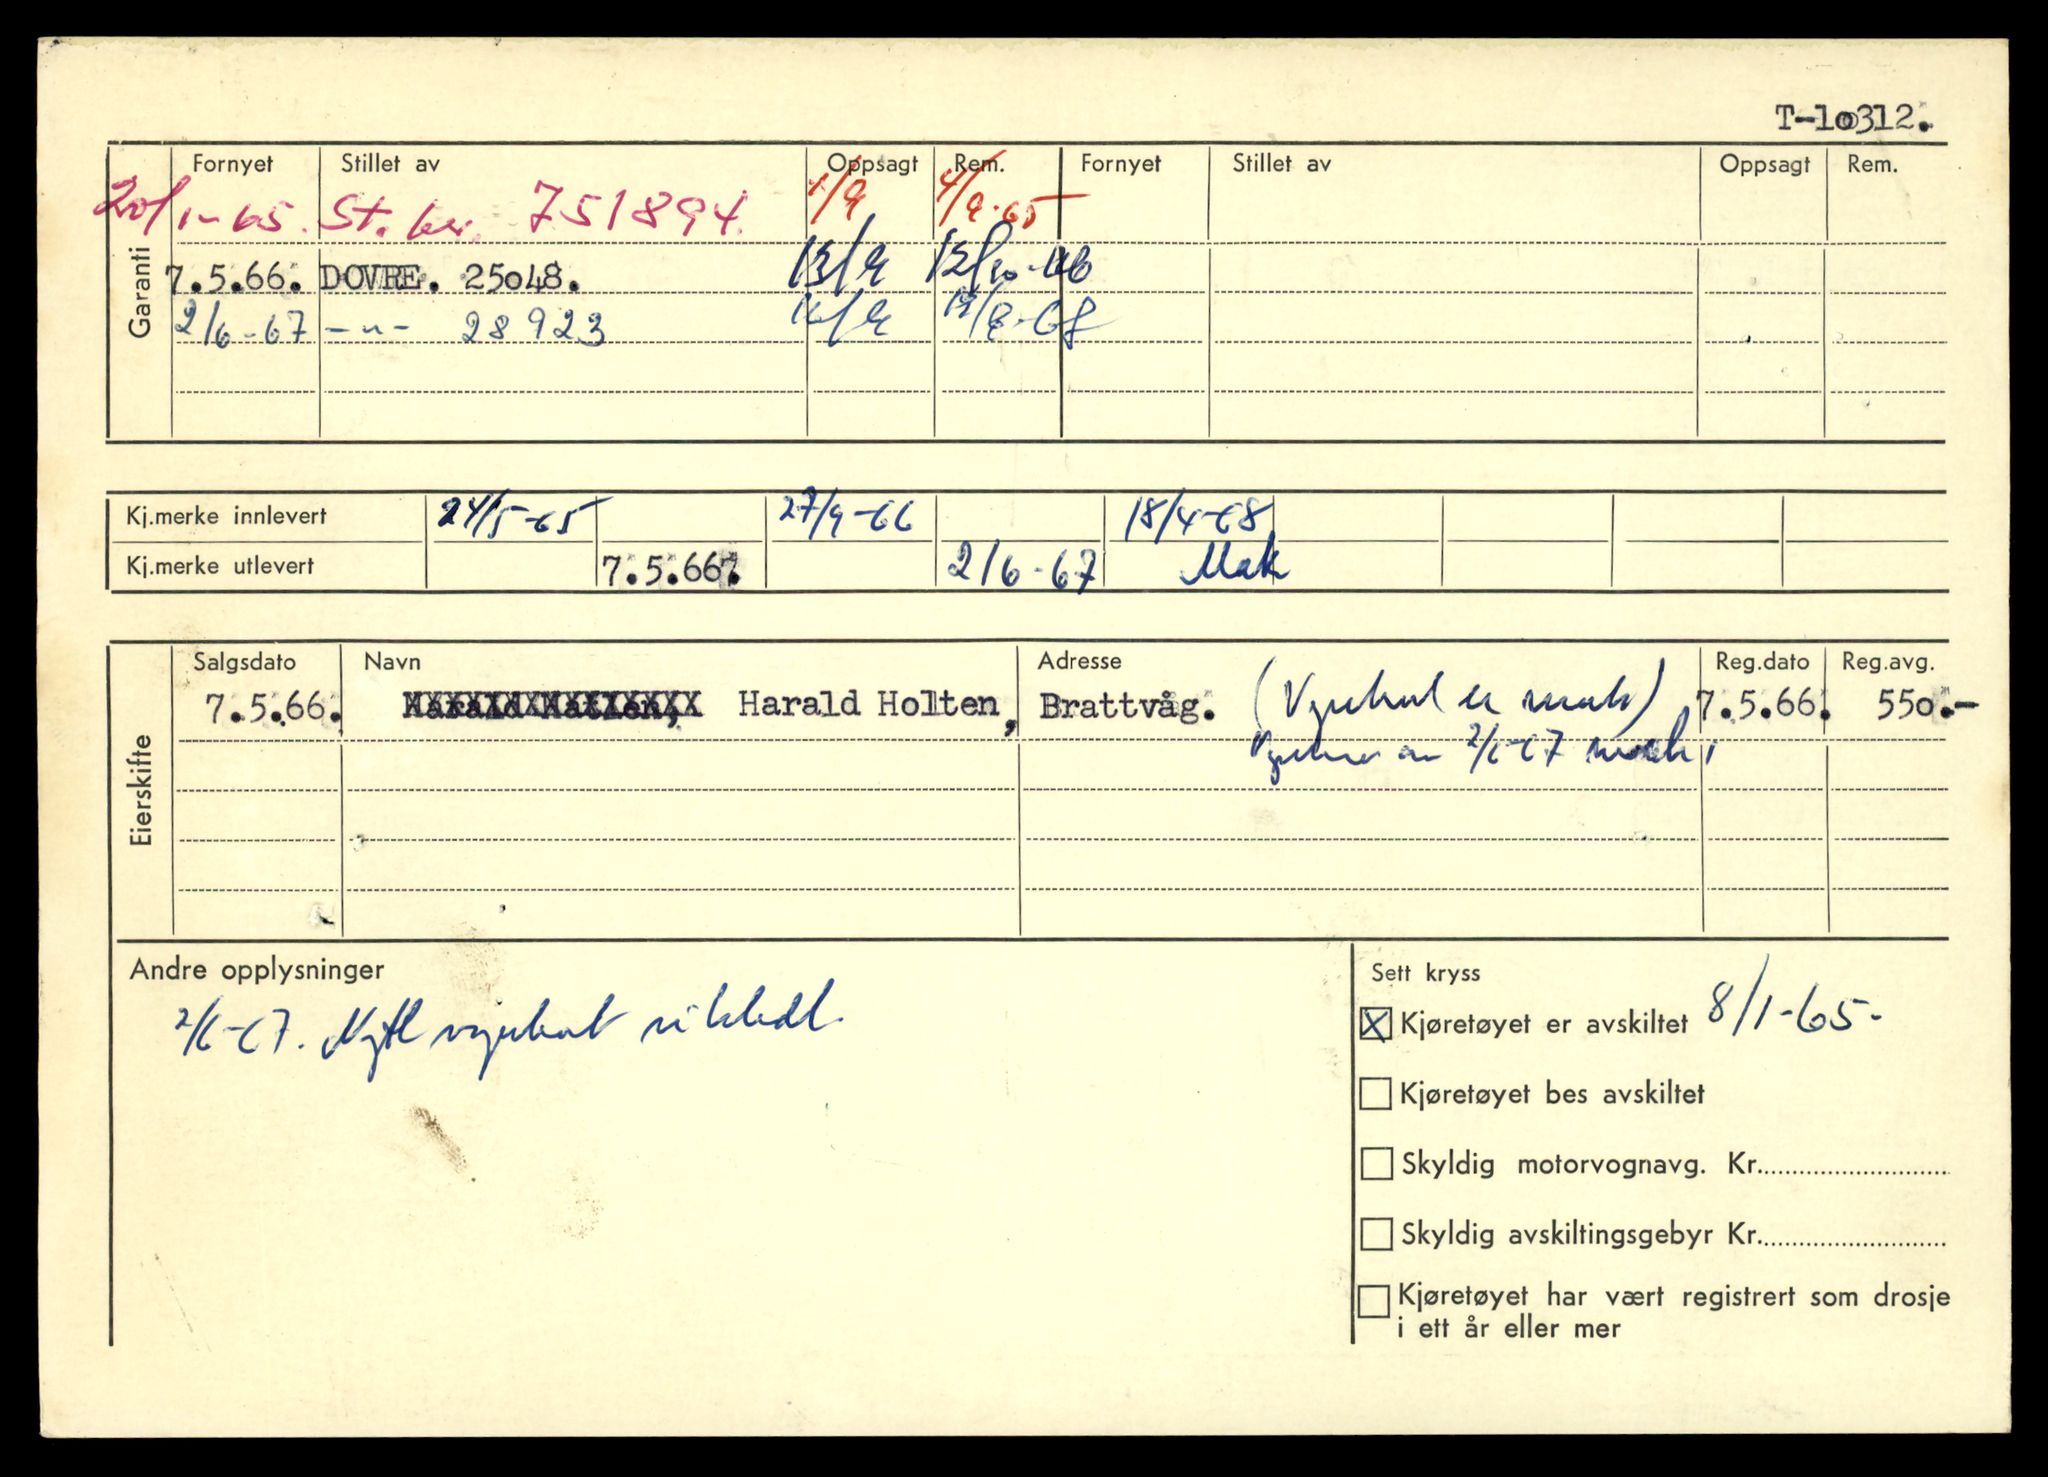 T-10312.
Garanti
Fornyet Stillet av Oppsagt Rem. Fornyet Stillet av Oppsagt Rem.
20/1-65. St. 751894.
7.5.66. DOVRE. 25o48.
2/6-67 -"- 28923
Kj.merke innlevert 24/5-65 27/9-66 18/4-68
Kj.merke utlevert 7.5.66. 2/6-67 Mak
Eierskifte
Salgsdato Navn Adresse Reg.dato Reg.avg.
7.5.66. Harald Holten, Brattvåg. (Vognkort er mak) 7.5.66. 55o.-
2/6-67 mak
Andre opplysninger
2/6-67. Nytt vognkort utstedt.
Sett kryss
X Kjøretøyet er avskiltet 8/1-65-
Kjøretøyet bes avskiltet
Skyldig motorvognavg. Kr.
Skyldig avskiltingsgebyr Kr.
Kjøretøyet har vært registrert som drosje
i ett år eller mer